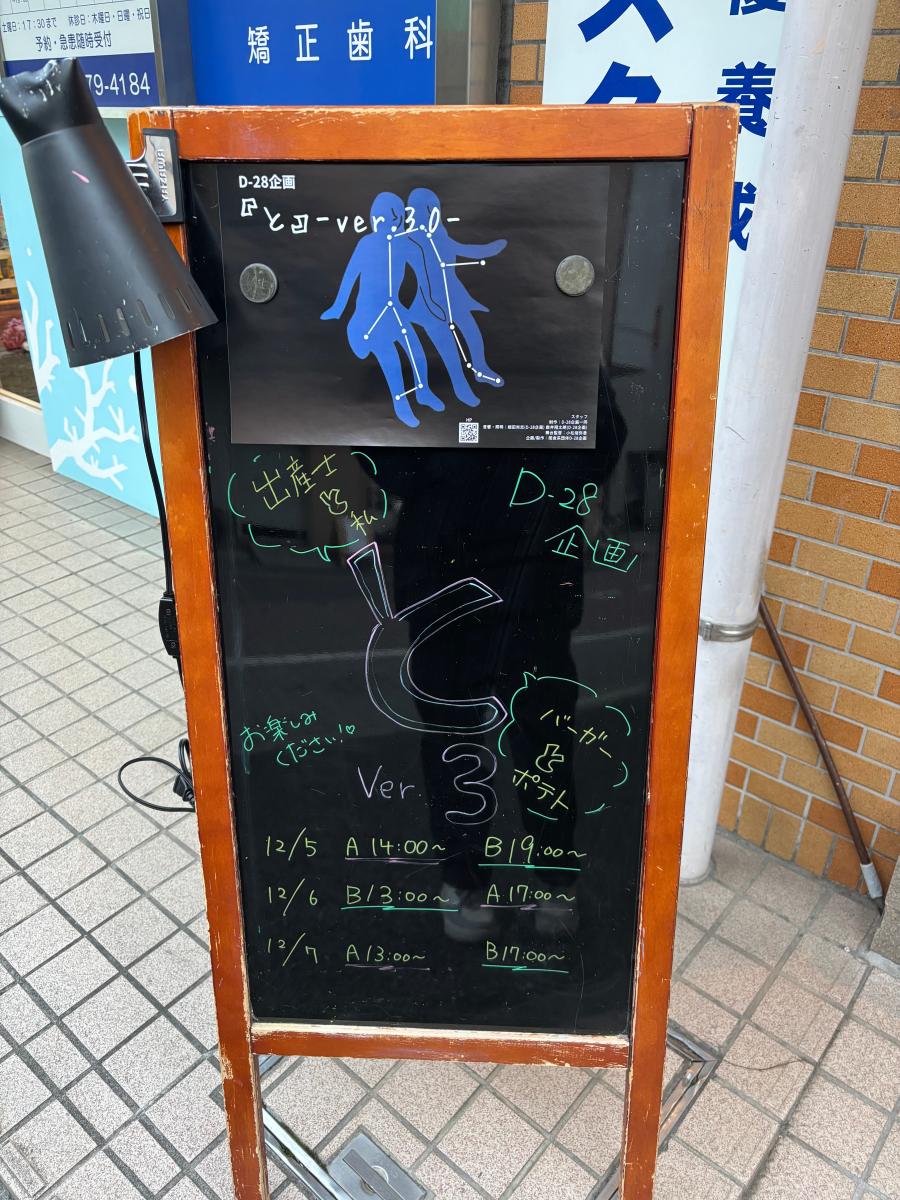 土曜日：17：30まで 休診日：木曜日・日曜・祝日
予約・急患随時受付
79-4184
矯正歯科
スク
養成
D-28企画
『と』-ver.3.0-
HP
スタッフ
出産士
と
私
D-28
企画
と
お楽しみ
ください!♡
Ver. 3
バーガー
と
ポテト
12/5 A 14:00~ B 19:00~
12/6 B 13:00~ A 17:00~
12/7 A 13:00~ B 17:00~